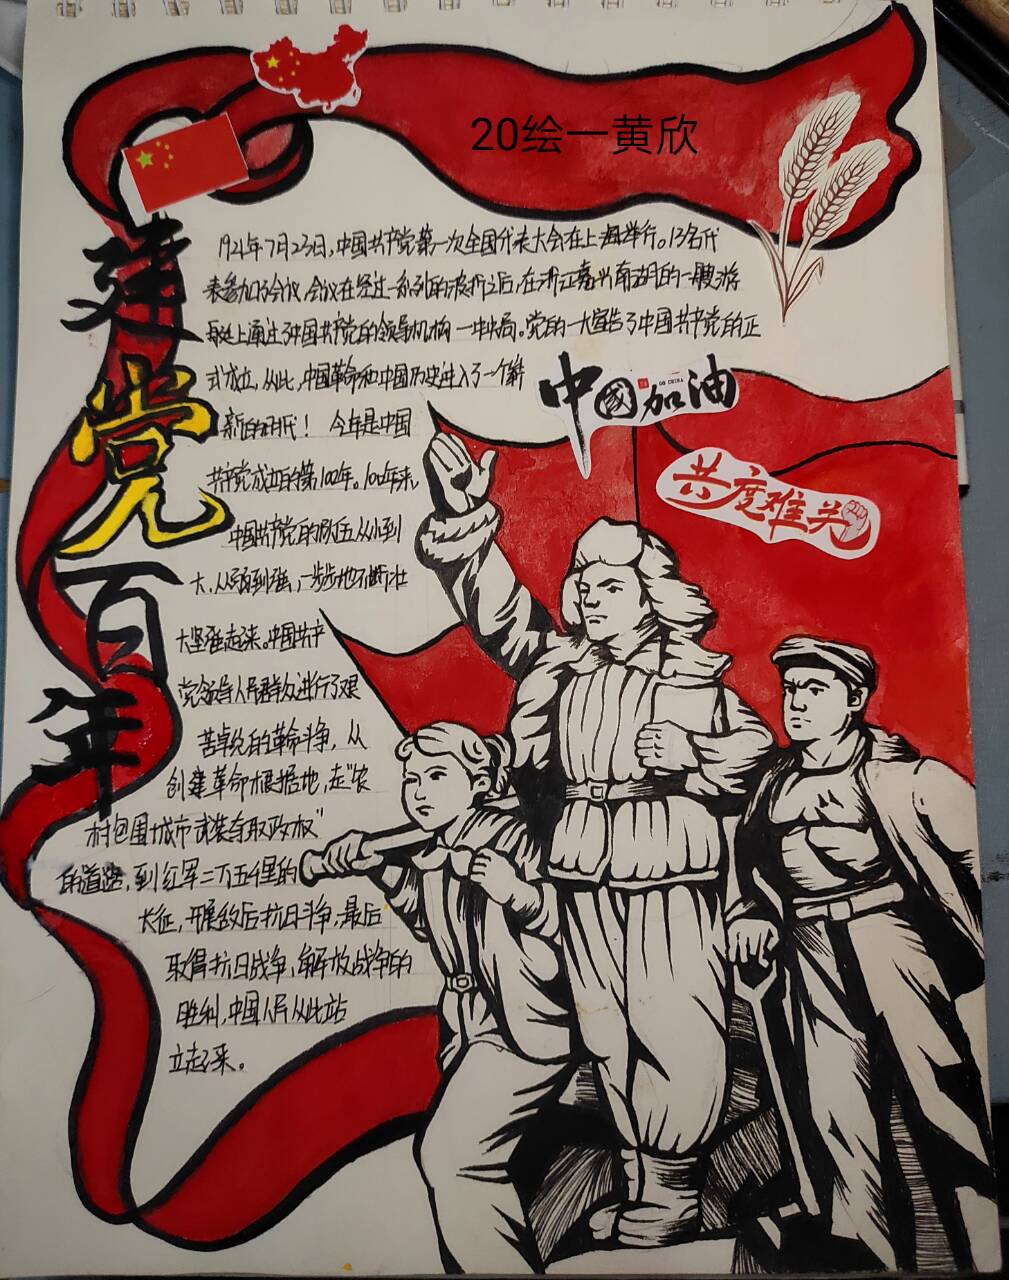 20绘一黄欣
建党百年
1921年7月23日,中国共产党第一次全国代表大会在上海举行。13名代
表参加了会议,会议在经过一系列的波折之后,在浙江嘉兴南湖的一艘游
艇上通过了中国共产党的领导机构一中央局。党的一大宣告了中国共产党的正
式成立,从此,中国革命和中国历史进入了一个崭
新的时代! 今年是中国
共产党成立的第100年。100年来,
中国共产党的队伍从小到
大,从弱到强,一步步地不断壮
大坚强起来。中国共产
党领导人民群众进行了艰
苦卓绝的革命斗争,从
创建革命根据地,走“农
村包围城市武装夺取政权”
的道路,到红军二万五千里的
长征,开展敌后抗日斗争,最后
取得抗日战争、解放战争的
胜利,中国人民从此站
立起来。
中國加油
GO CHINA
共度难关